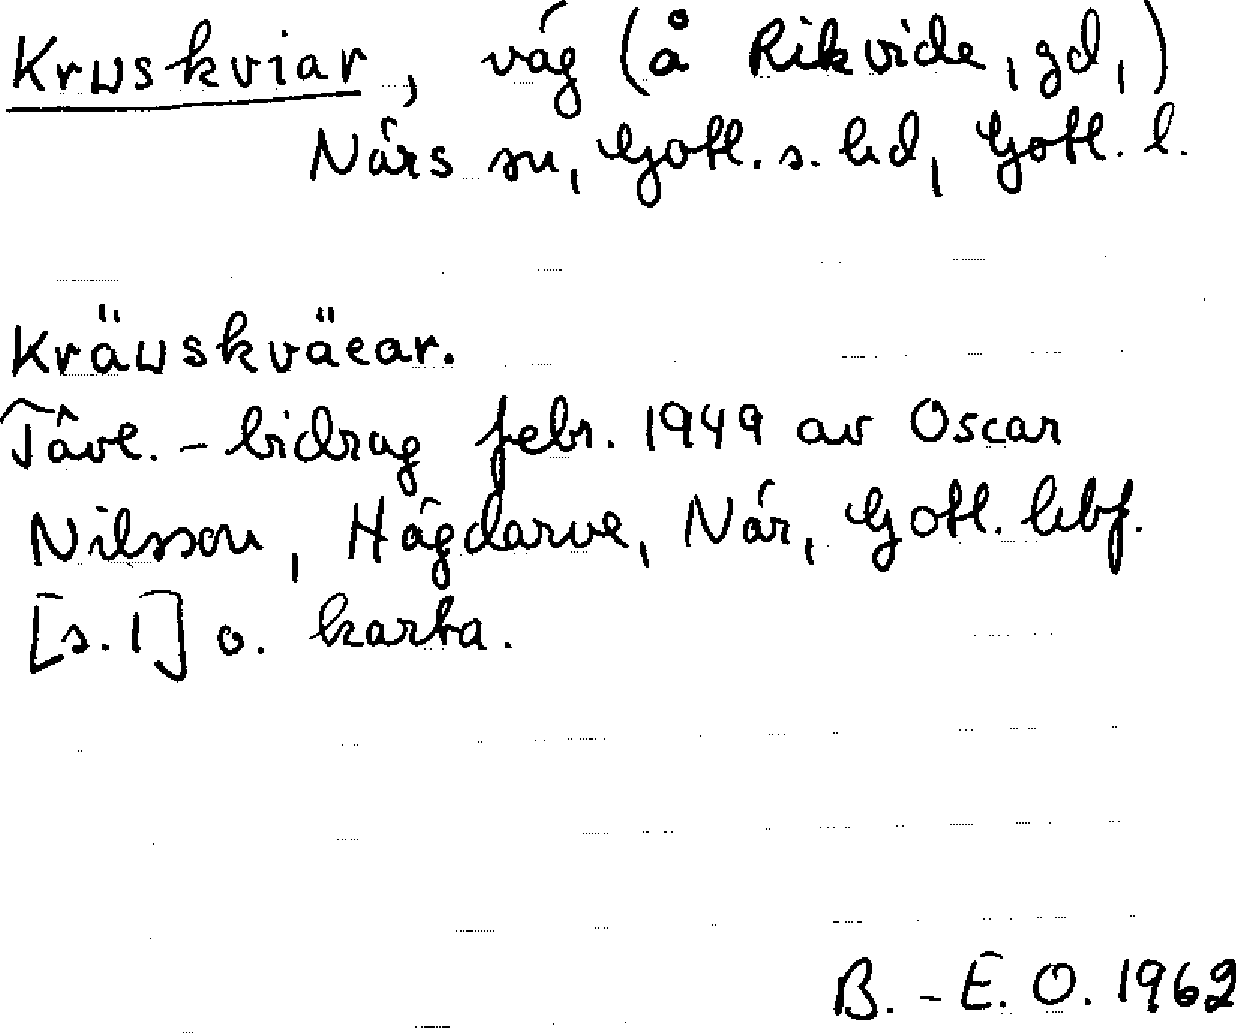 Kruskviar, väg (å Rikvide, gd,)
Närs sn, Gotl. s. hd, Gotl. l.
Kräuskväear.
Tävl.-bidrag febr. 1949 av Oscar
Nilsson, Hägdarve, När, Gotl. hbf.
[s. 1] o. karta.
B.-E. O. 1962